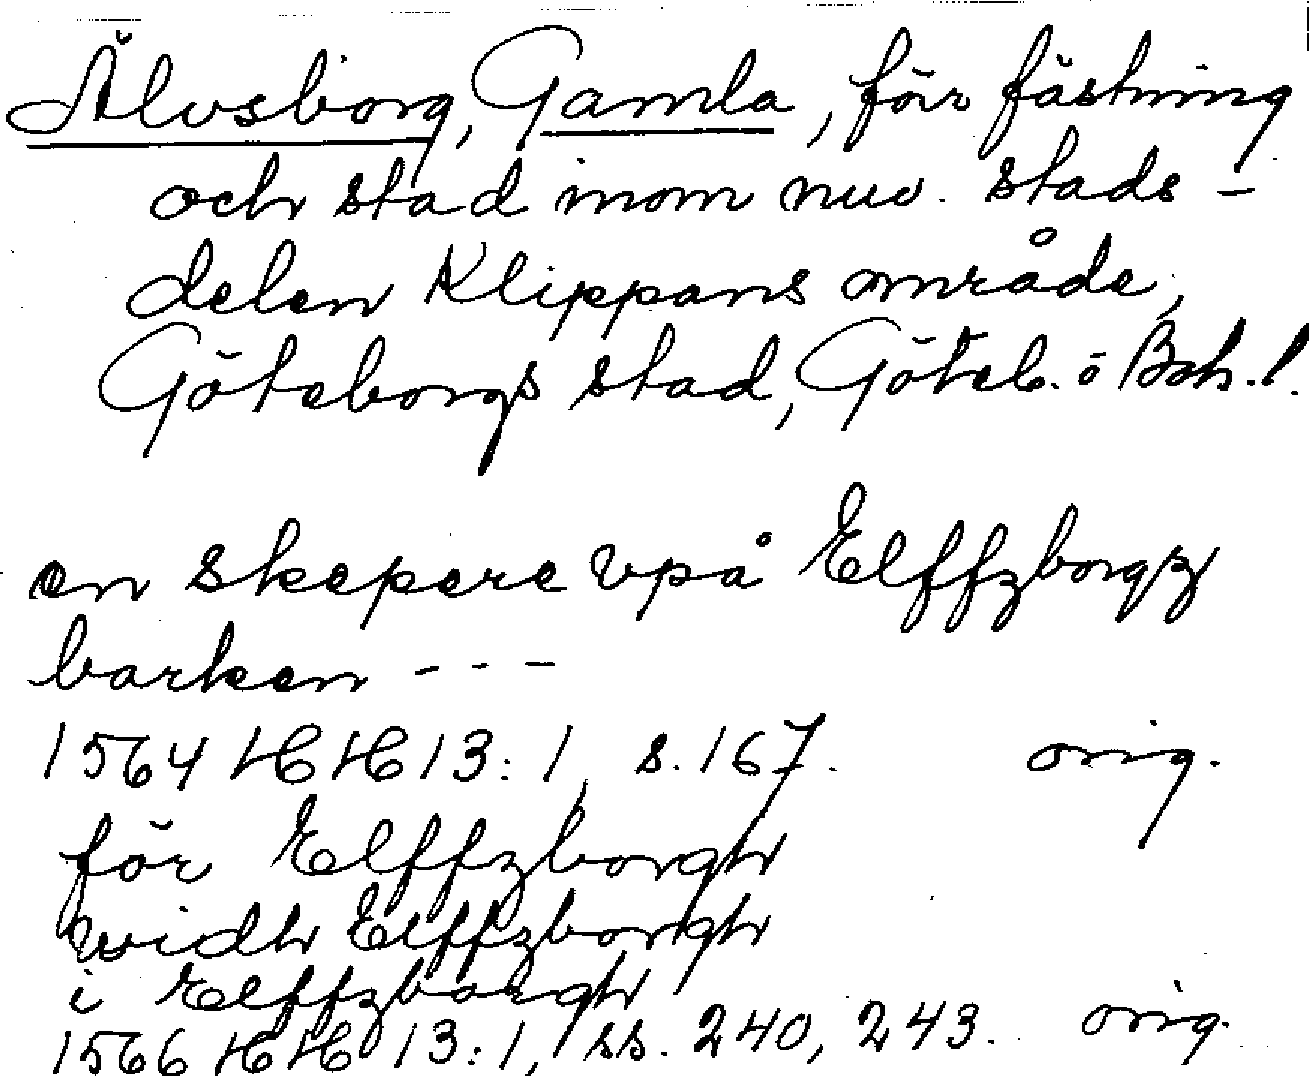 Älvsborg, Gamla, förr fästning
och stad inom nuv. stads-
delen Klippans område,
Göteborgs stad, Göteb. o Boh. l.
en skepere vpå Elffzborgz
barken - - -
1564 HH 13:1, s. 167. orig.
för Elffzborgh
widh Elffzborgh
i Elffzborgh
1566 HH 13:1, ss. 240, 243. orig.